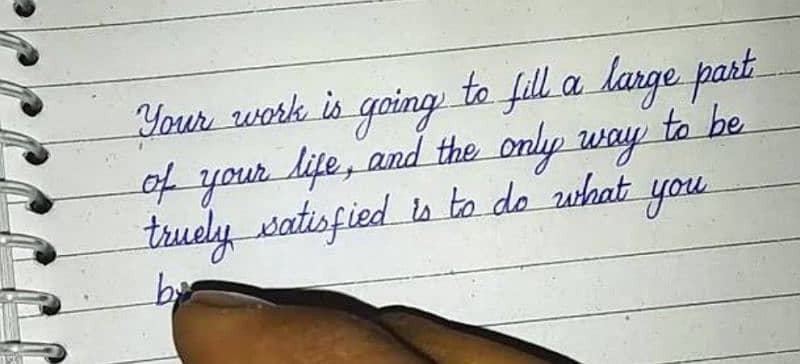 Your work is going to fill a large part
of your life, and the only way to be
truely satisfied is to do what you